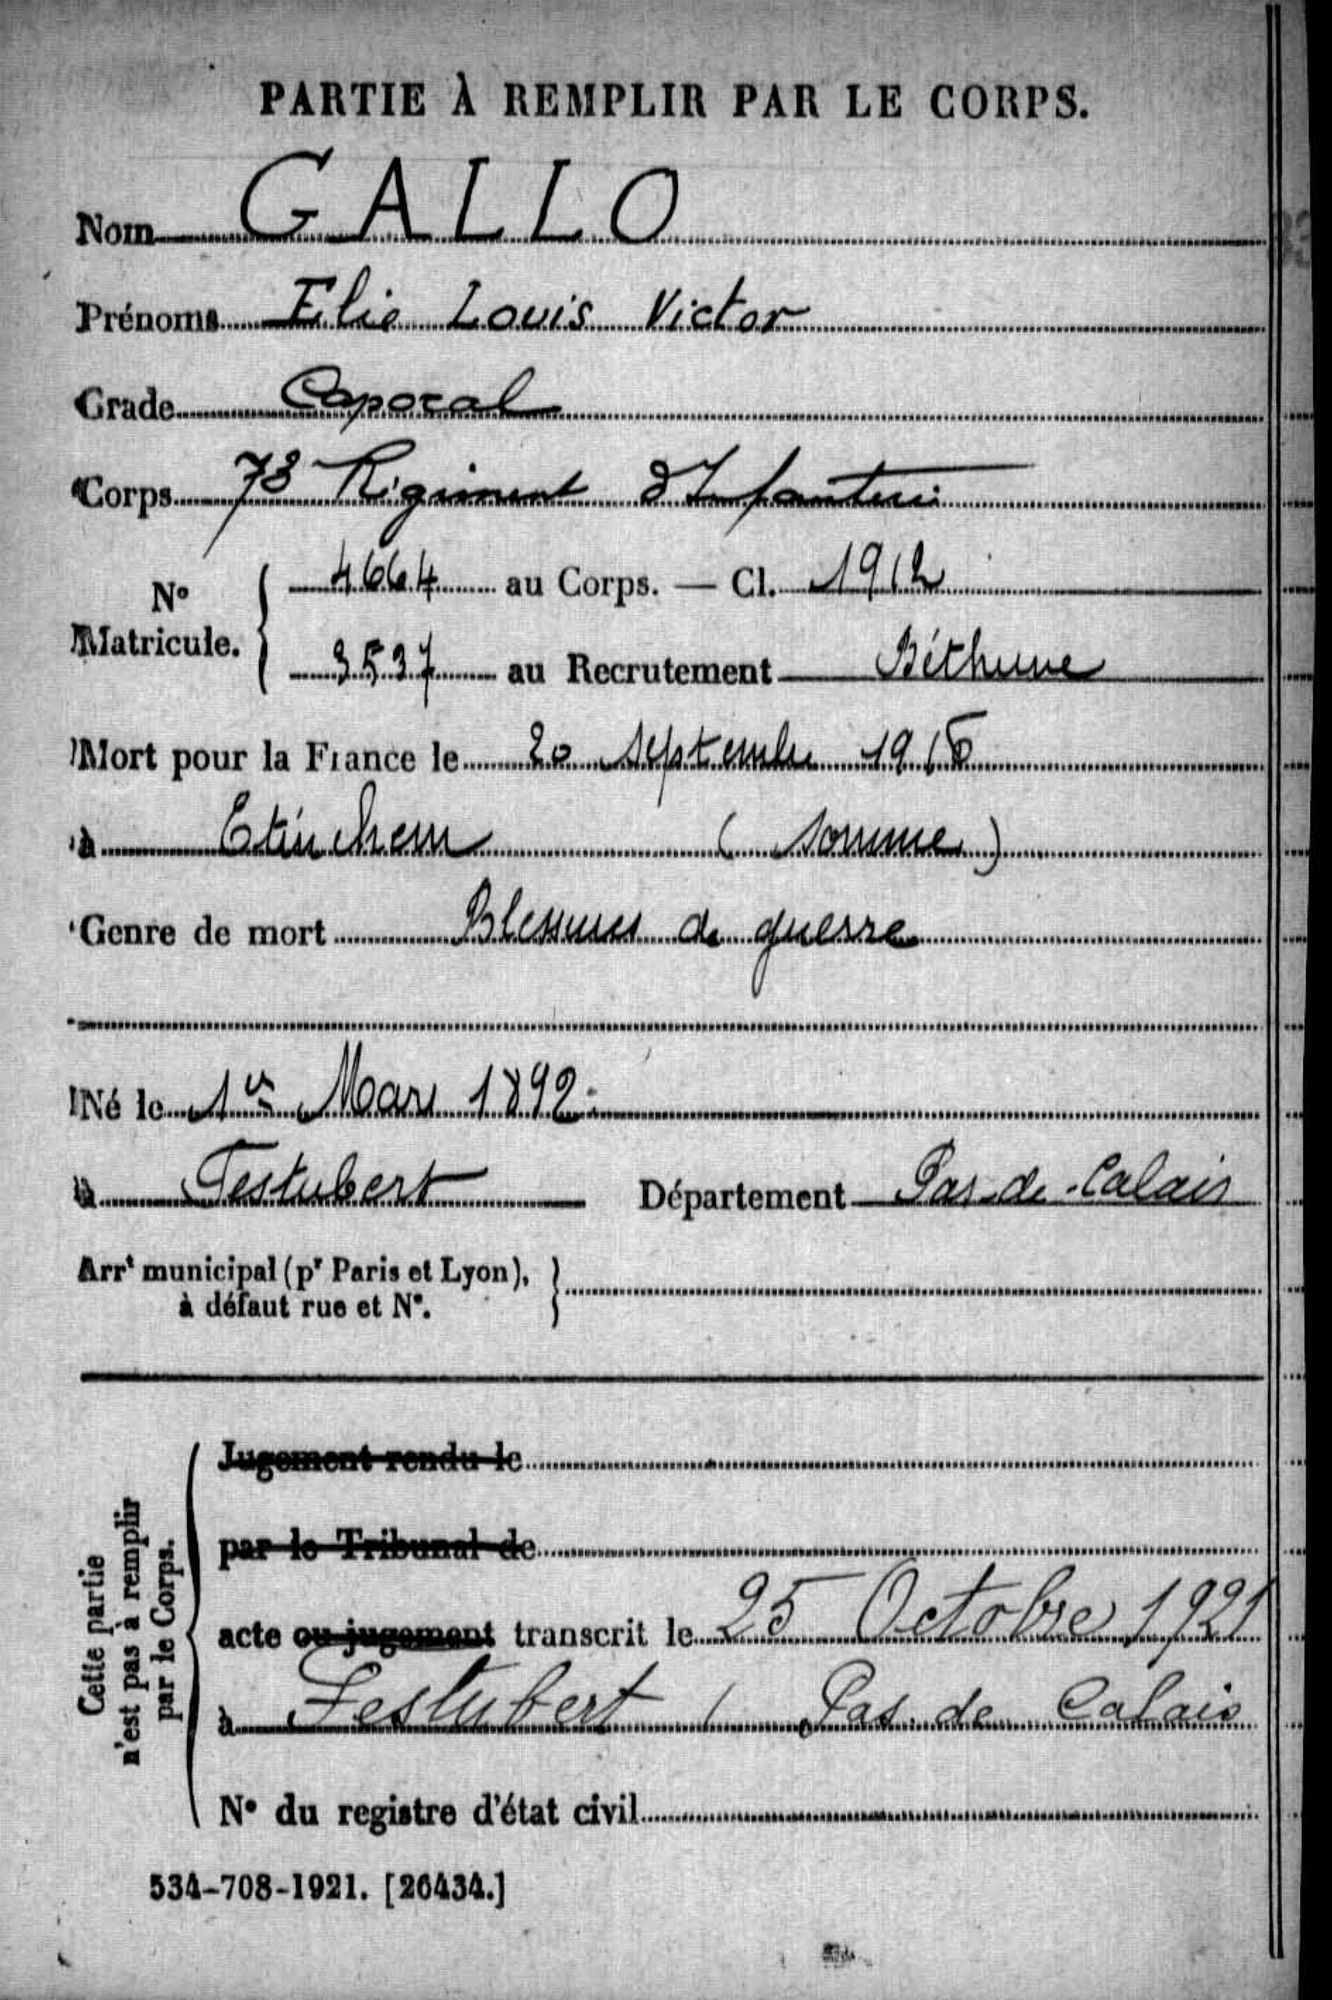 PARTIE À REMPLIR PAR LE CORPS.
Nom GALLO
Prénoms Elie Louis Victor
Grade Caporal
Corps 73 Régiment d'Infanterie
N° Matricule. 4664 au Corps. — Cl. 1912
3537 au Recrutement Béthune
Mort pour la France le 20 Septembre 1916
à Etinehem (Somme)
Genre de mort Blessures de guerre
Né le 1er Mars 1892
à Festubert Département Pas-de-Calais
Arrt municipal (pr Paris et Lyon),
à défaut rue et N°.
Cette partie
n'est pas à remplir
par le Corps.
Jugement rendu le
par le Tribunal de
acte ou jugement transcrit le 25 Octobre 1921
à Festubert (Pas de Calais
N° du registre d'état civil
534-708-1921. [26434.]